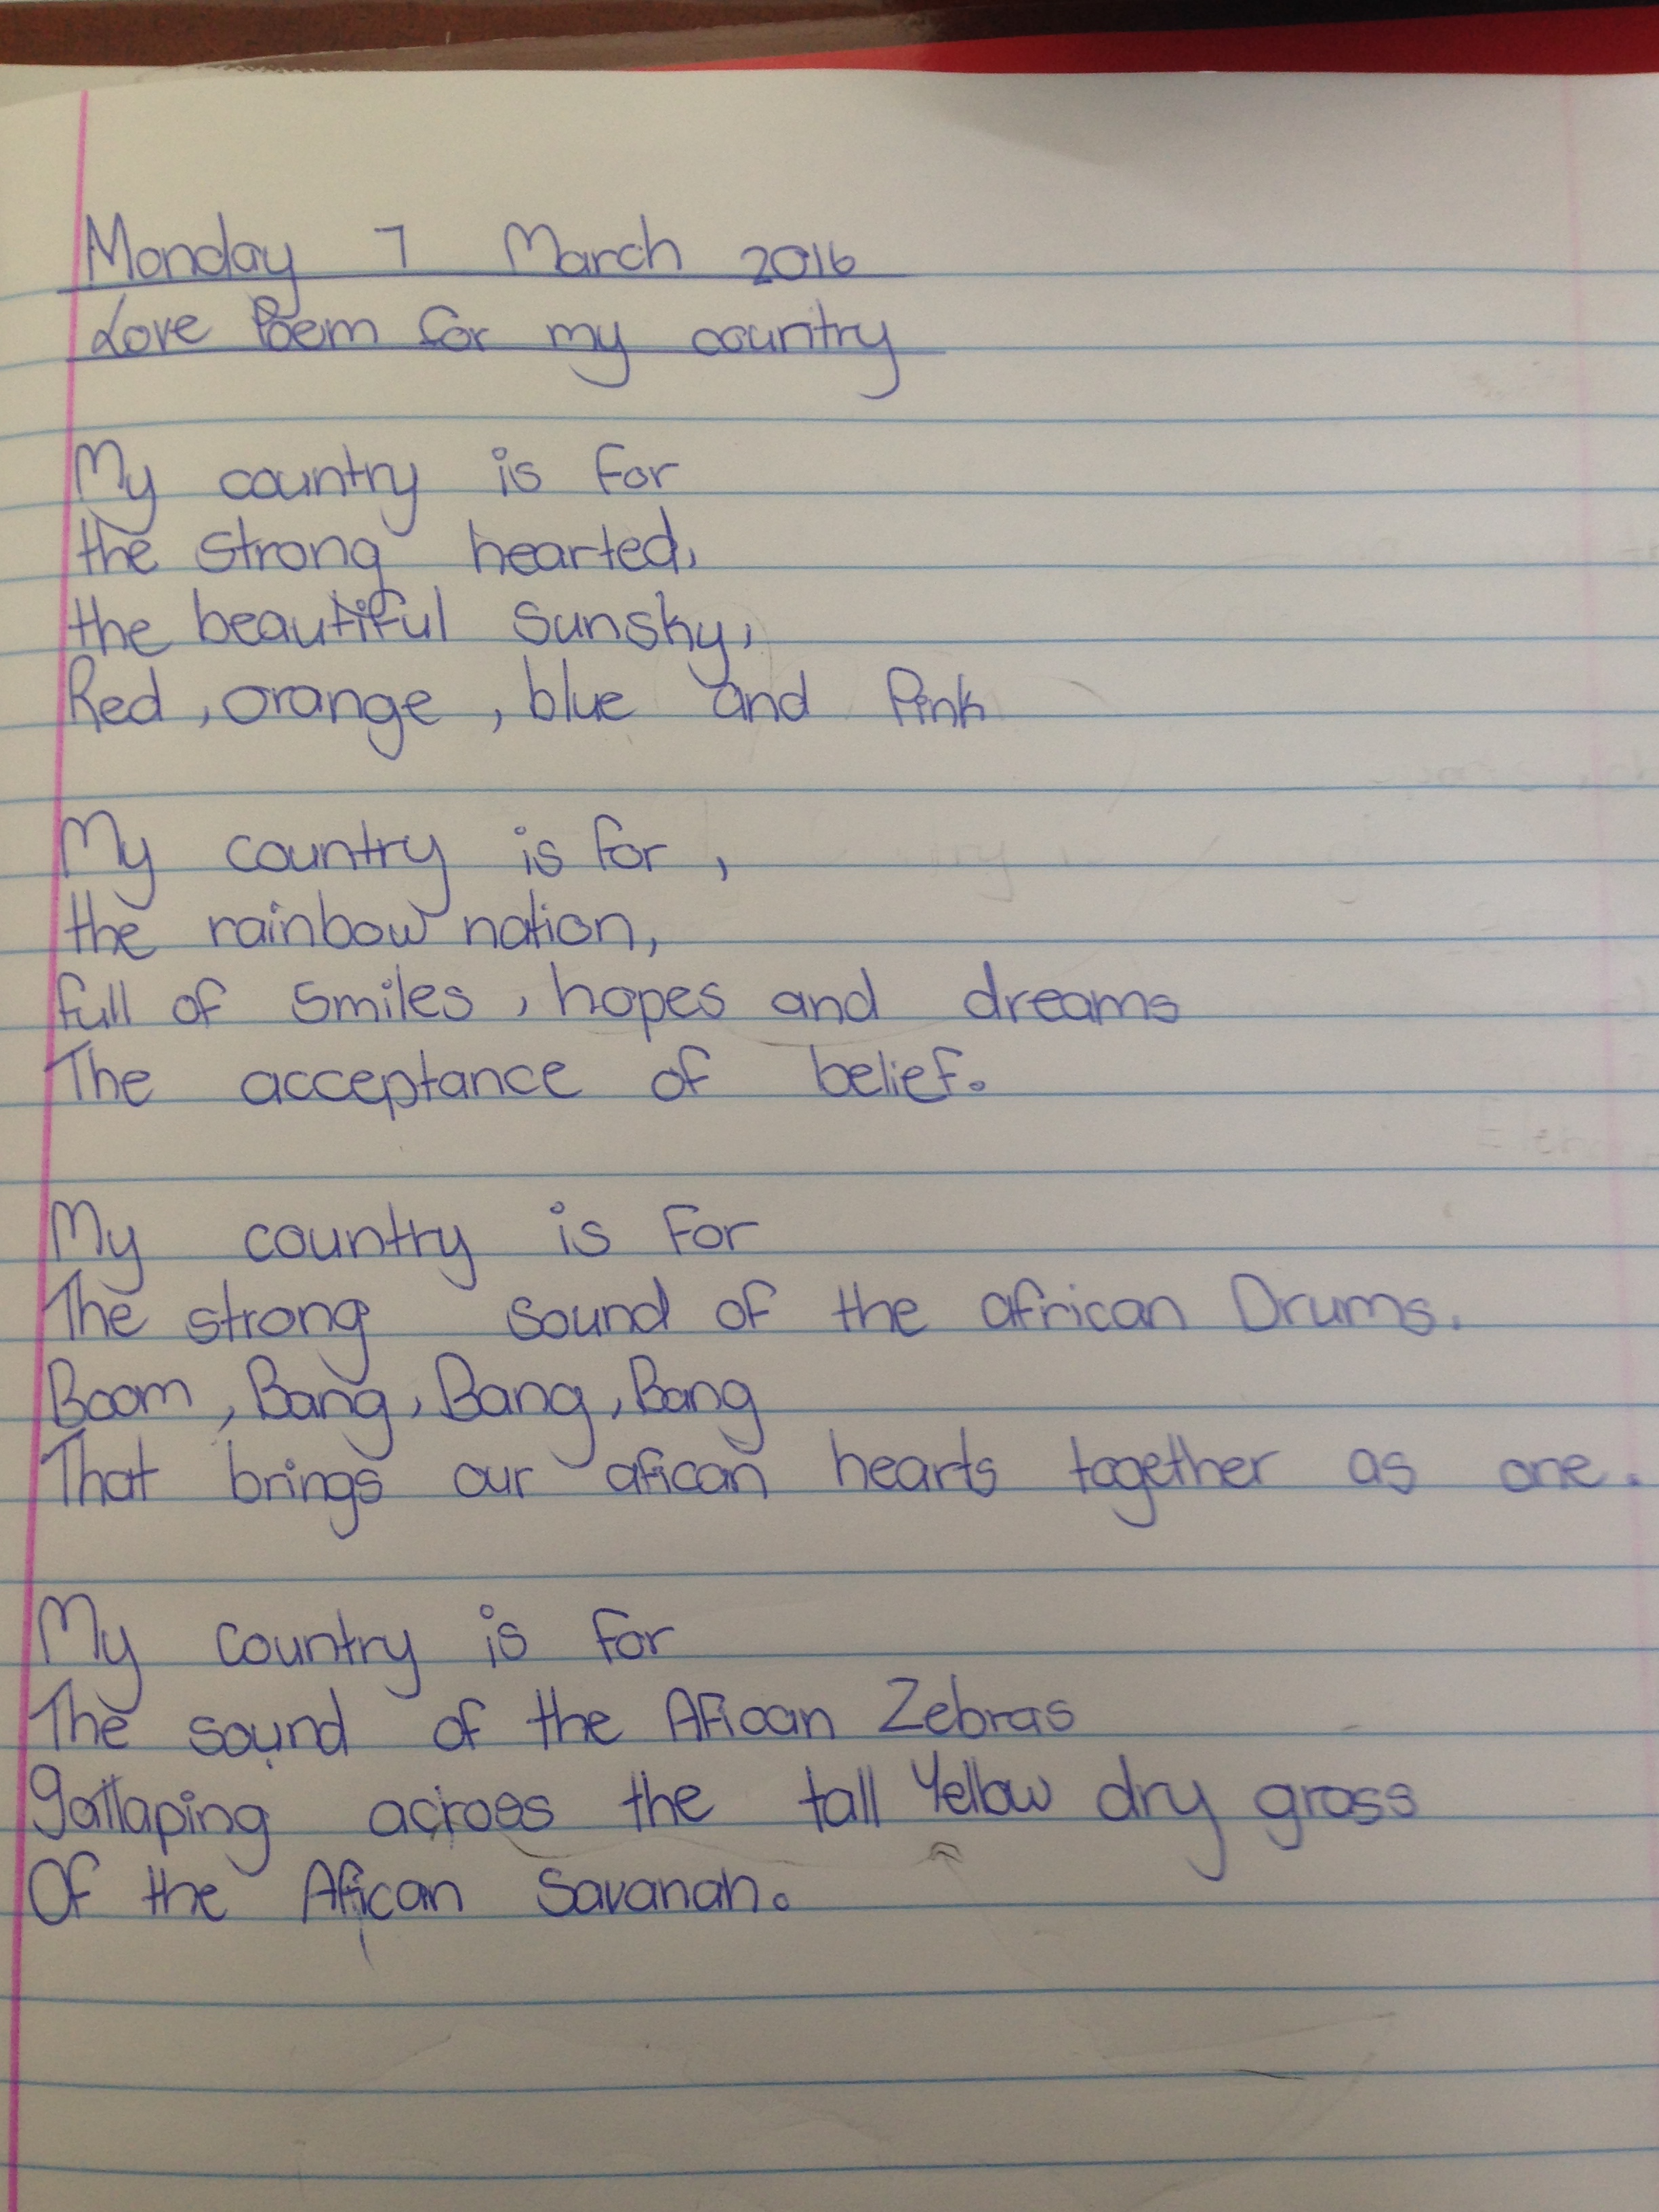 Monday 7 March 2016
Love Poem for my country
My country is for
the strong hearted,
the beautiful sunsky,
Red, orange, blue and Pink
My country is for,
the rainbow nation,
full of smiles, hopes and dreams
The acceptance of belief.
My country is for
The strong sound of the african Drums.
Boom, Bang, Bang, Bang
That brings our african hearts together as one.
My country is for
The sound of the African Zebras
gallaping across the tall Yellow dry grass
Of the African Savanah.